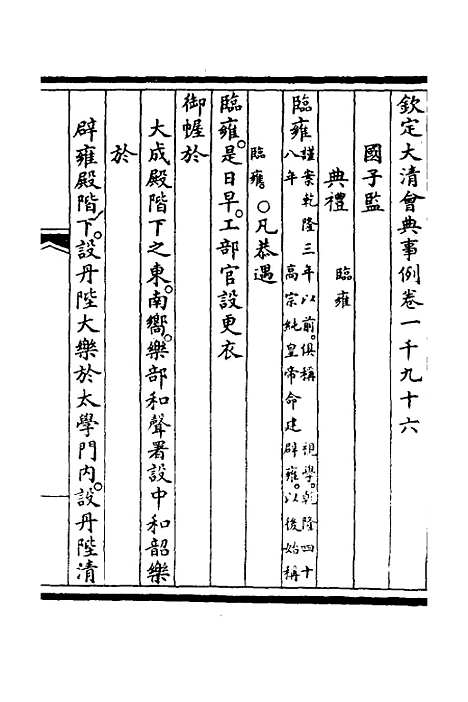 欽定大清會典事例卷一千九十六
國子監
典禮 臨雍
臨雍謹案乾隆三年以前。俱稱 視學。乾隆四十
八年 高宗純皇帝命建辟雍。以後始稱
臨雍 ○凡恭遇
臨雍。是日早。工部官設更衣
御幄於
大成殿階下之東。南嚮。樂部和聲署設中和韶樂
於
辟雍殿階下。設丹陛大樂於太學門內。設丹陛清